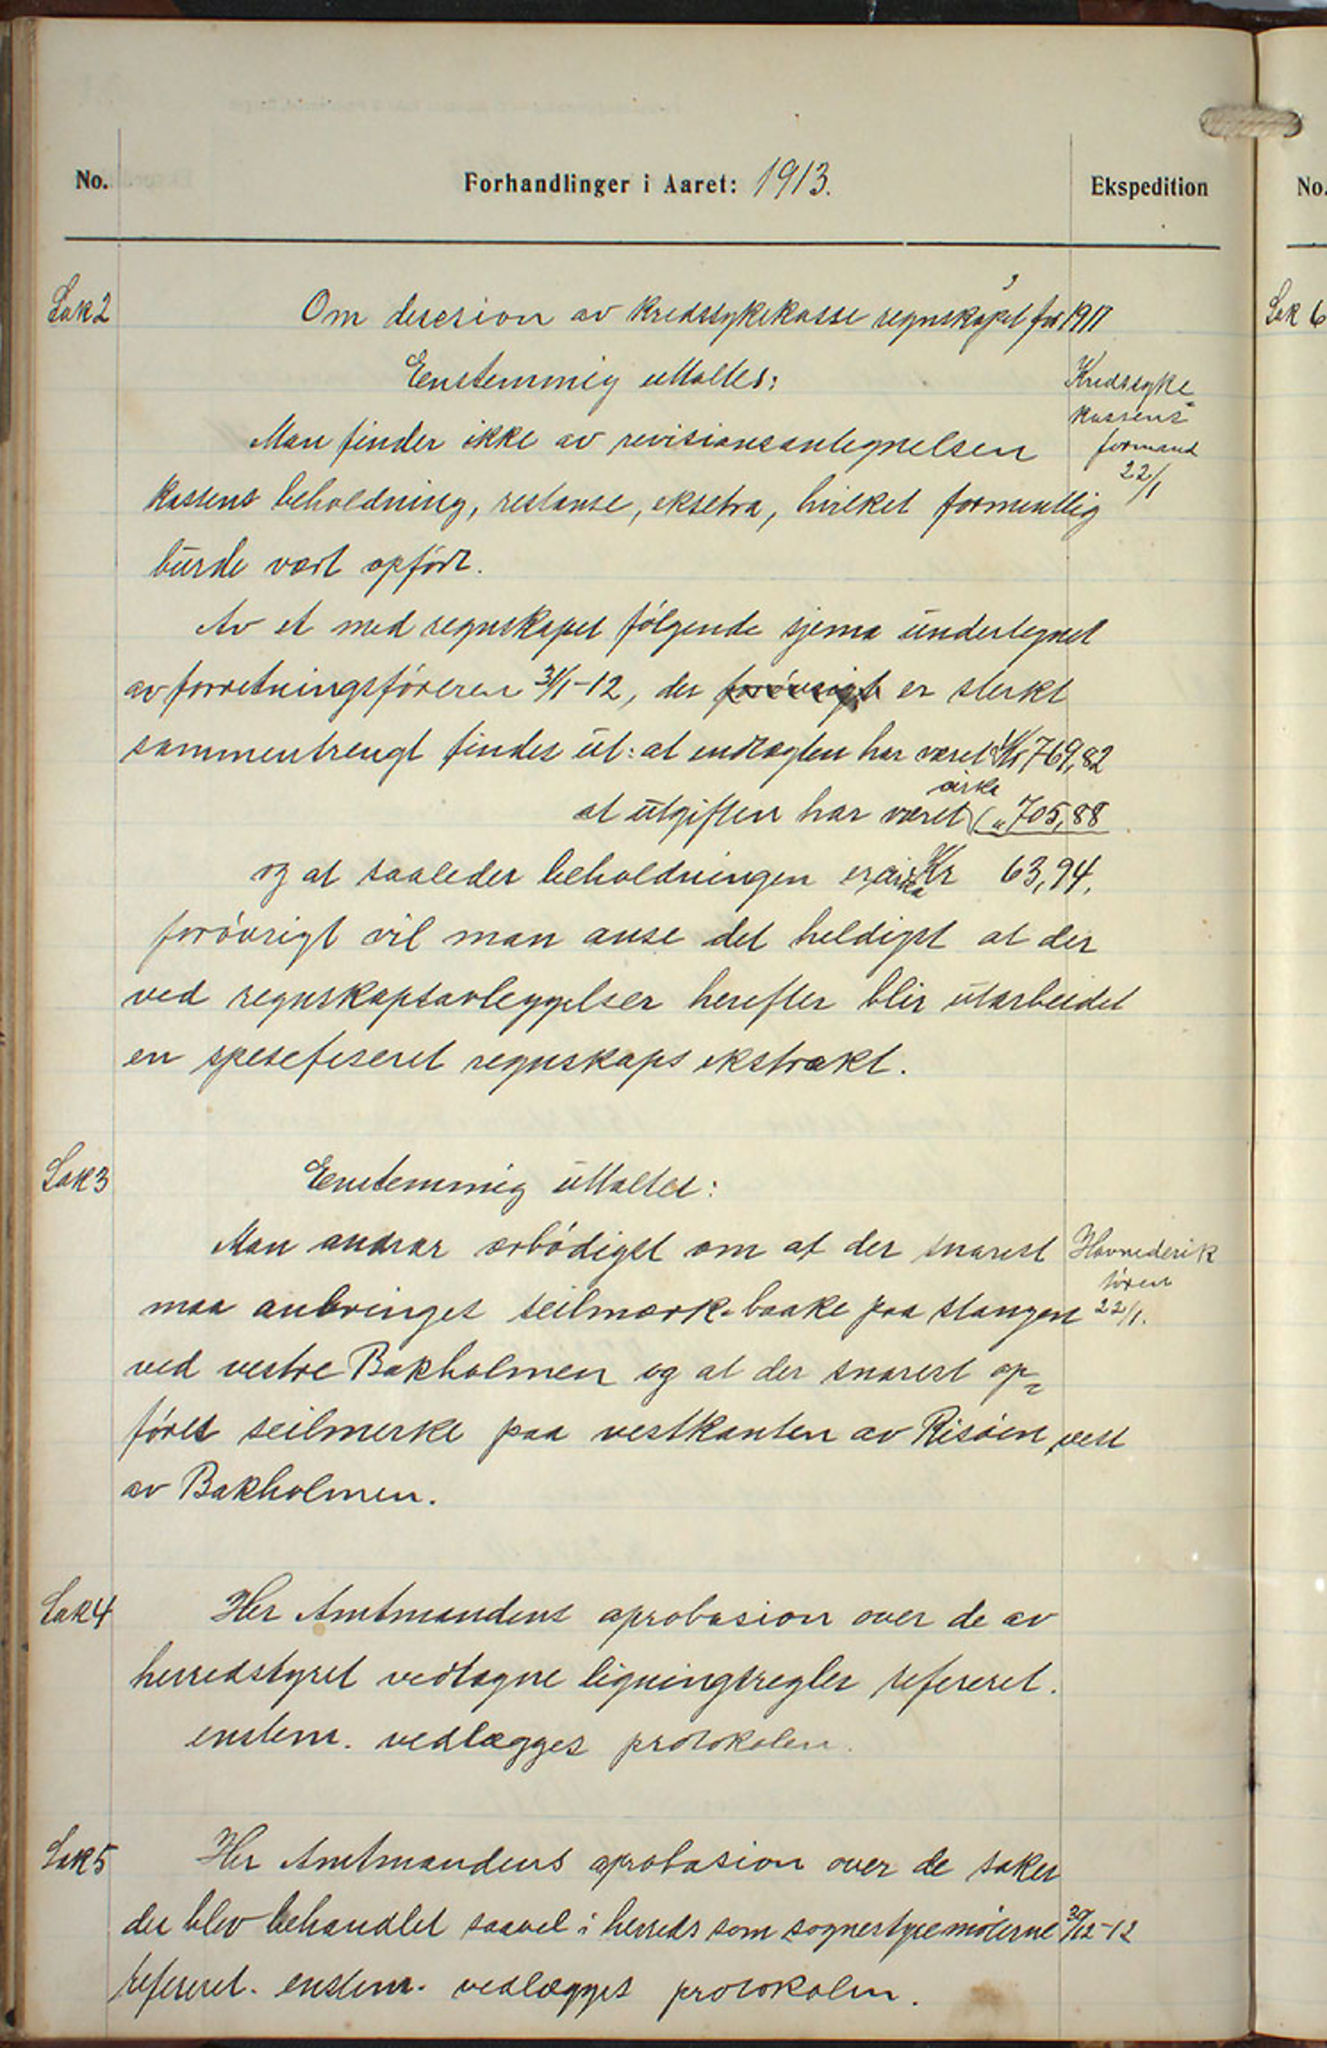 No. Forhandlinger i Aaret: 1913. Ekspedition No.
Sak 2 Om desesion av kredssykekasse regnskapet for 1911 Sak 6
Eenstemmig uttaltes:
Kredssyke-
kassens
formand
22/1
Man finder ikke av revisionsantegnelsen
kassens beholdning, restanse, eksetra, hvilket formentlig
burde vært opført.
Av et med regnskapet følgende sjema undertegnet
av forretningsføreren 31/1-12, der forøvrigt er sterkt
sammentrengt findes ut: at indtægten har været Kr 769,82
cirka
at utgiften har været " 705,88
og at saaledes beholdningen er cirka Kr 63,94,
forøvrigt vil man anse det heldigst at der
ved regnskapsavleggelser herefter blir utarbeidet
en spesefiseret regnskaps ekstrakt.
Sak 3 Eenstemmig uttaltes:
Man andrar ærbødigst om at der snarest
Havnedirik
tøren
22/1.
maa anbringes seilmærk-baake paa stangen
ved vestre Bakholmen og at der snarest op=
føres seilmerke paa vestkanten av Risøen vest
av Bakholmen.
Sak 4 Her Amtmandens aprobasion over de av
herredstyret vedtagne ligningsregler refereret.
enstem. vedlægges protokolen.
Sak 5 Her Amtmandens aprobasion over de saker
der blev behandlet saavel i herreds som sognestyremøterne 30/12-12
refereret. enstem. vedlægges protokolen.